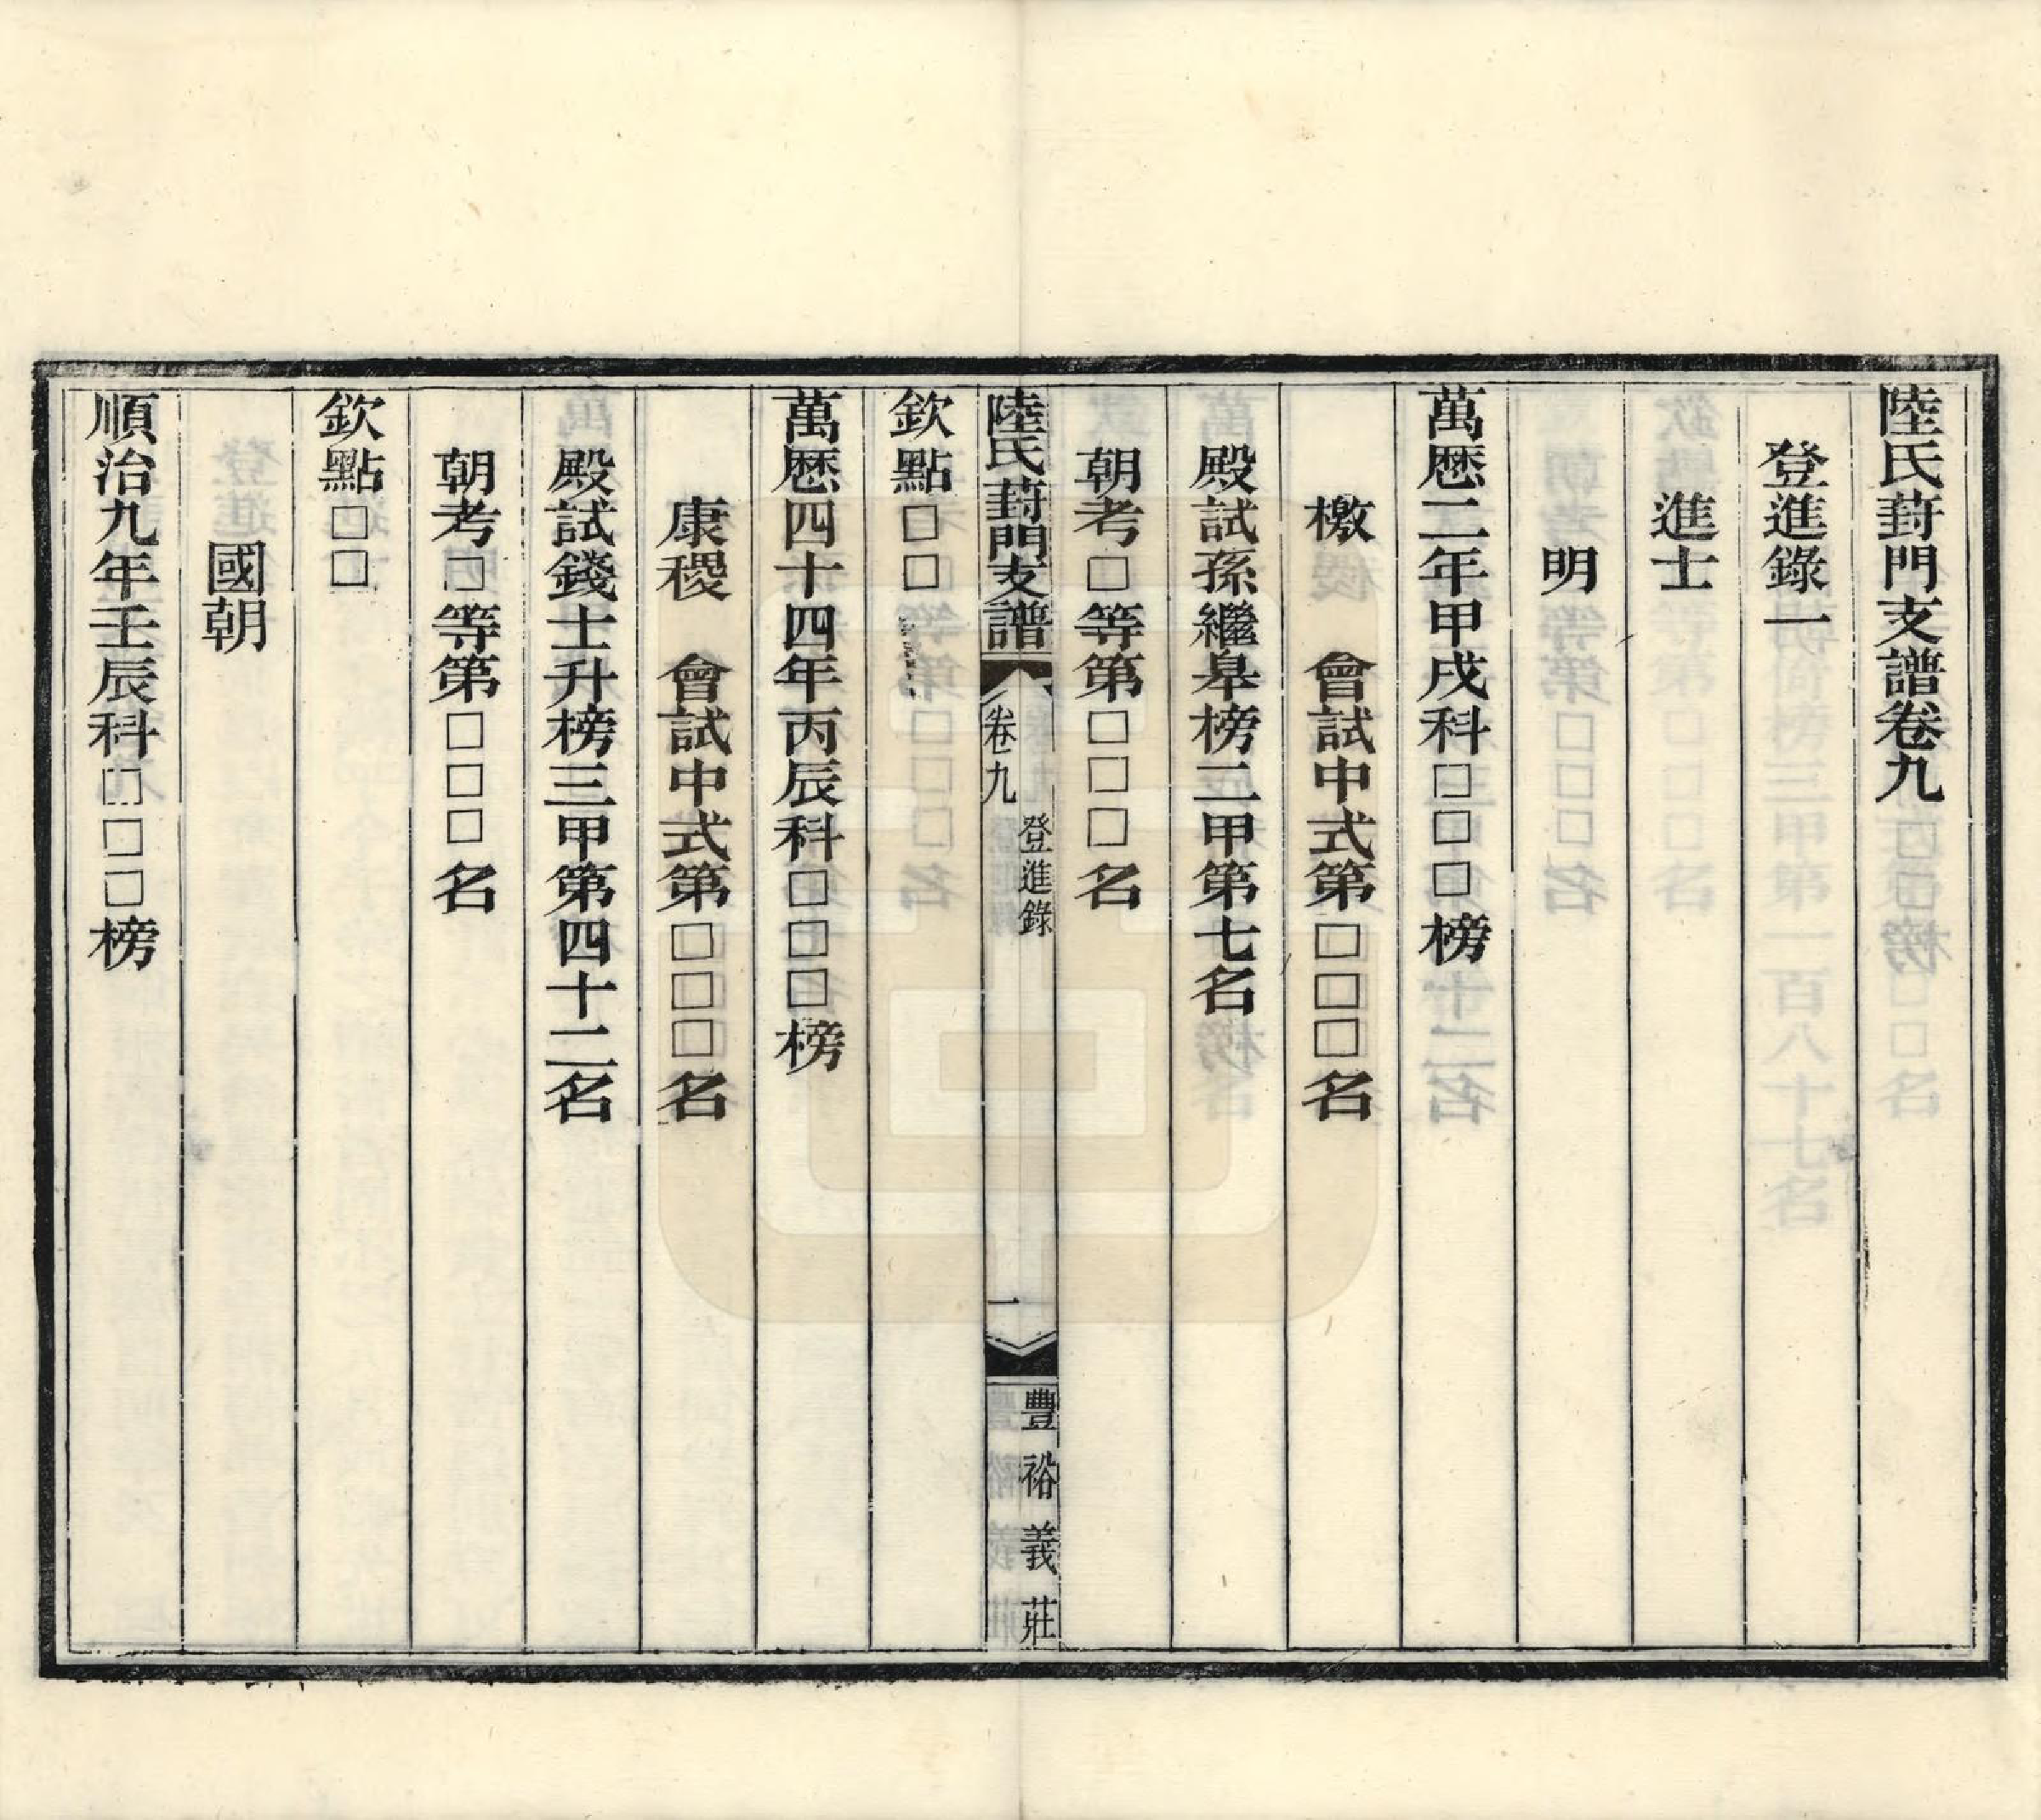 陸氏葑門支譜卷九
登進錄一
進士
明
萬厯二年甲戌科□□□榜
檄　會試中式第□□□名
殿試孫繼皋榜二甲第七名
朝考□等第□□□名
陸氏葑門支譜
卷九
登進錄
一
豐裕義莊
欽點□□
萬厯四十四年丙辰科□□□榜
康稷　會試中式第□□□名
殿試錢士升榜三甲第四十二名
朝考□等第□□□名
欽點□□
國朝
順治九年壬辰科□□□榜